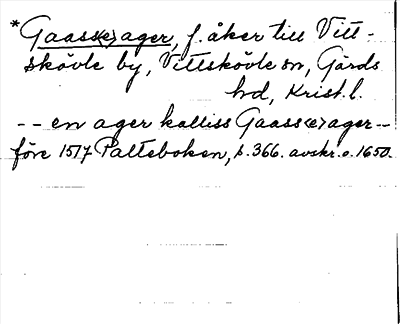 *Gaass(e)ager, f. åker till Vitt-
skövle by, Vittskövle sn, Gärds
hd, Krist. l.
-- en ager kalliss Gaass(e)ager --
före 1517 Palteboken, s. 366. avskr. o. 1650.